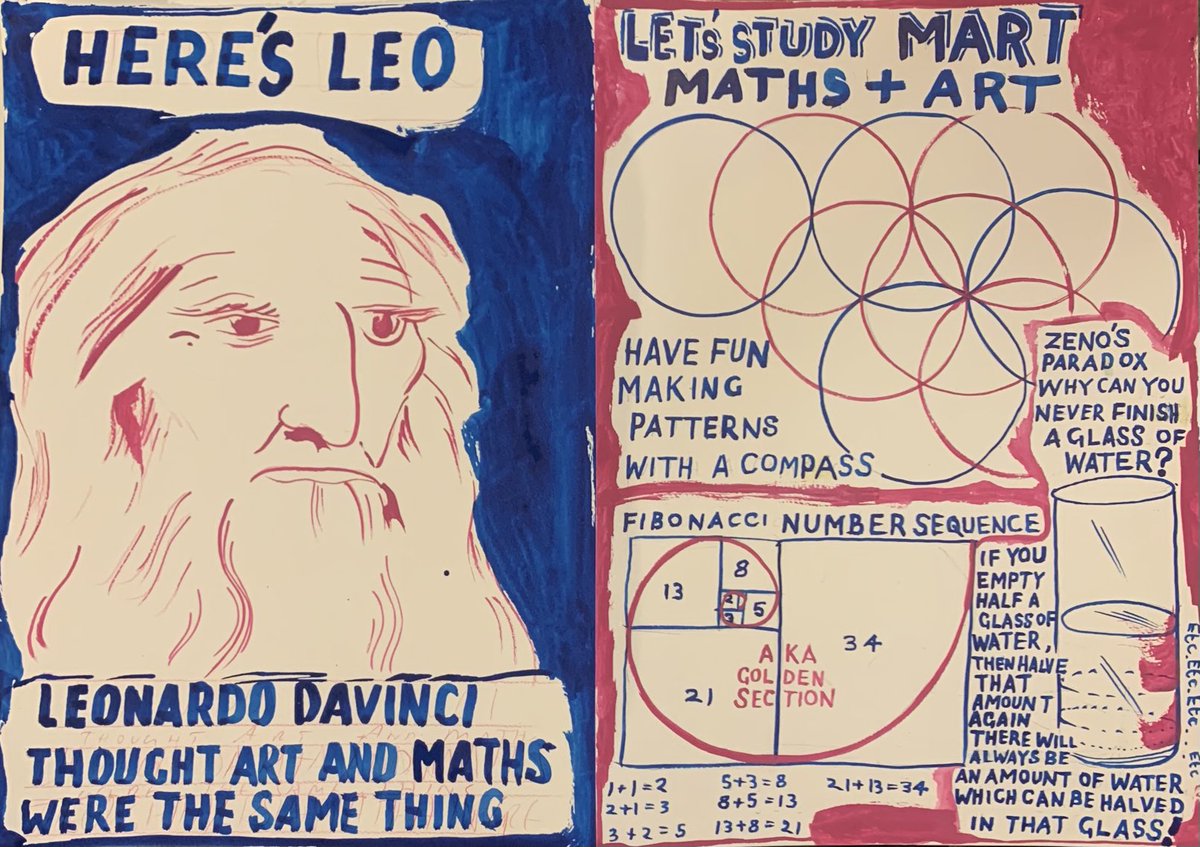 HERE'S LEO
LEONARDO DAVINCI
THOUGHT ART AND MATHS
WERE THE SAME THING
LET'S STUDY MART
MATHS + ART
HAVE FUN
MAKING
PATTERNS
WITH A COMPASS
ZENO'S
PARADOX
WHY CAN YOU
NEVER FINISH
A GLASS OF
WATER?
FIBONACCI NUMBER SEQUENCE
13
8
5
34
21
A KA
GOLDEN
SECTION
1+1=2
2+1=3
3+2=5
5+3=8
8+5=13
13+8=21
21+13=34
IF YOU
EMPTY
HALF A
GLASS OF
WATER,
THEN HALVE
THAT
AMOUNT
AGAIN
THERE WILL
ALWAYS BE
AN AMOUNT OF WATER
WHICH CAN BE HALVED
IN THAT GLASS!
Etc. Etc. Etc. Etc